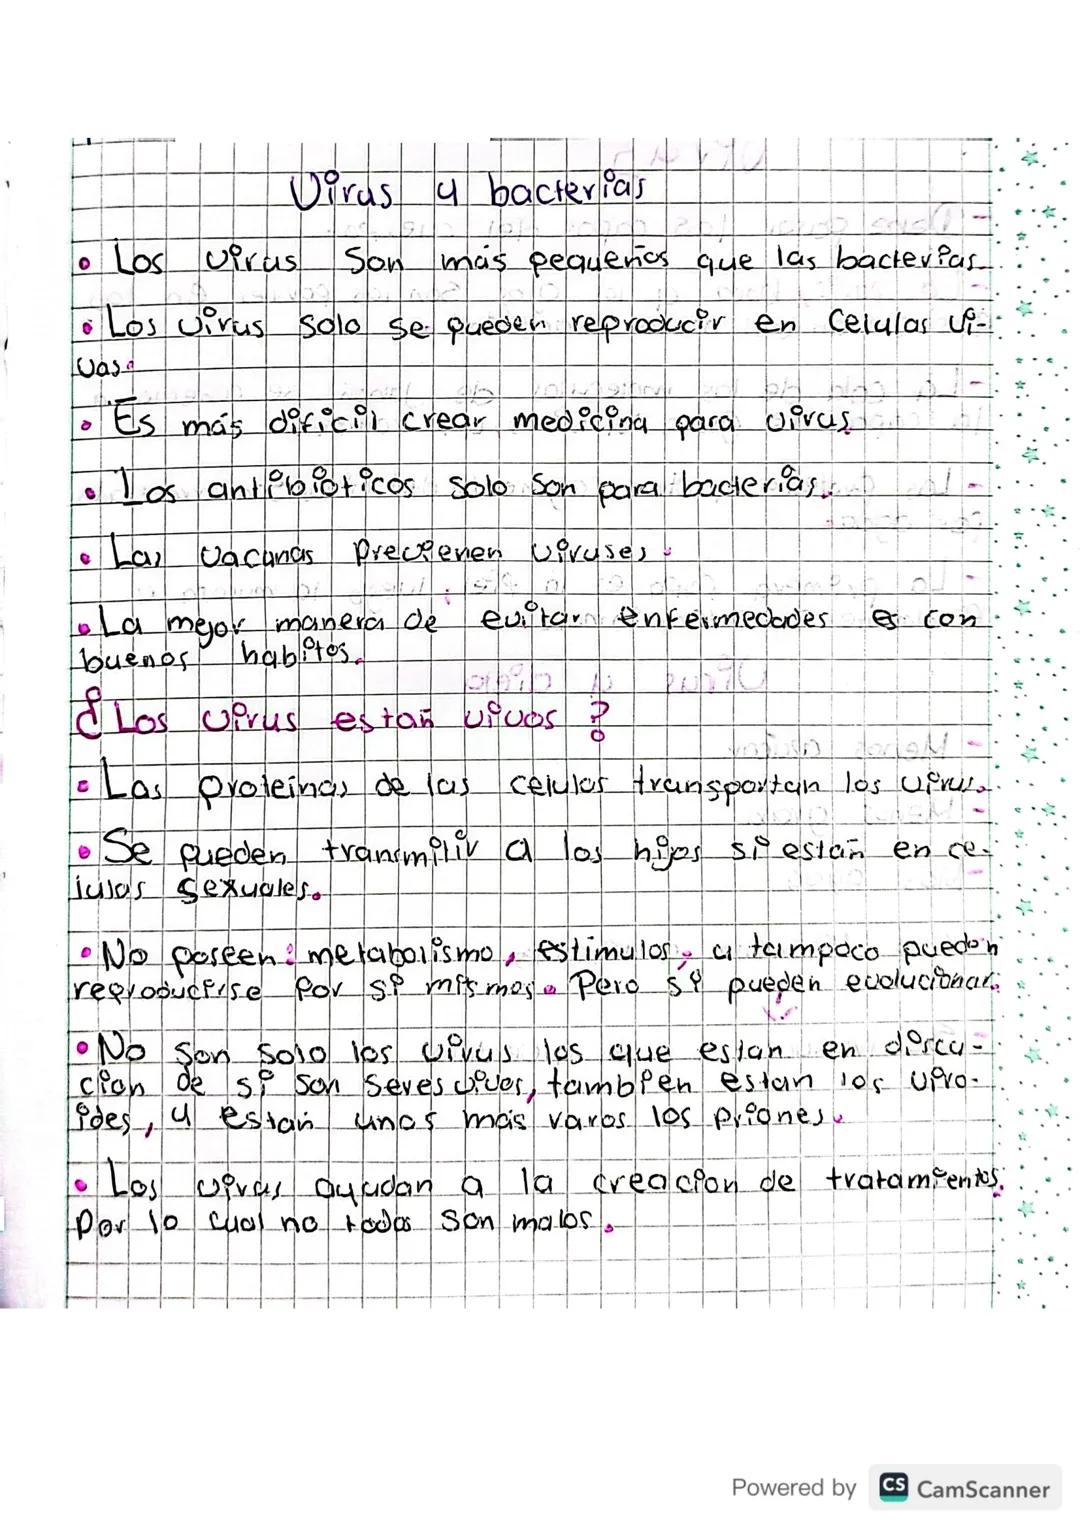 Virus y bacterias
• Los virus son más pequeños que las bacterias.
• Los virus solo se pueden reproducir en celulas vi-
vas.
• Es más dificil crear medicina para virus.
• Los antibióticos solo son para bacterias.
• Las vacunas previenen viruses.
• La mejor manera de evitar enfermedades es con
buenos habitos.
¿Los virus están vivos?
• Las proteínas de las celulas transportan los virus.
• Se pueden transmitir a los hijos si están en ce-
lulas sexuales.
• No poseen: metabolismo, estimulos, y tampoco pueden
reproducirse por si mismos. Pero sí pueden evolucionar.
• No son solo los virus los que estan en discu-
cion de si son seres vivos, tambien estan los viro-
ides, y están unos más raros los priones.
• Los virus ayudan a la creacion de tratamientos.
Por lo cual no todos son malos.
Powered by CS CamScanner